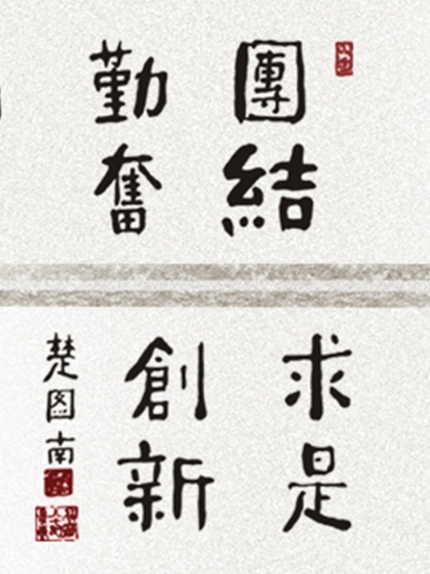 團結
勤奮
求是
創新
楚图南